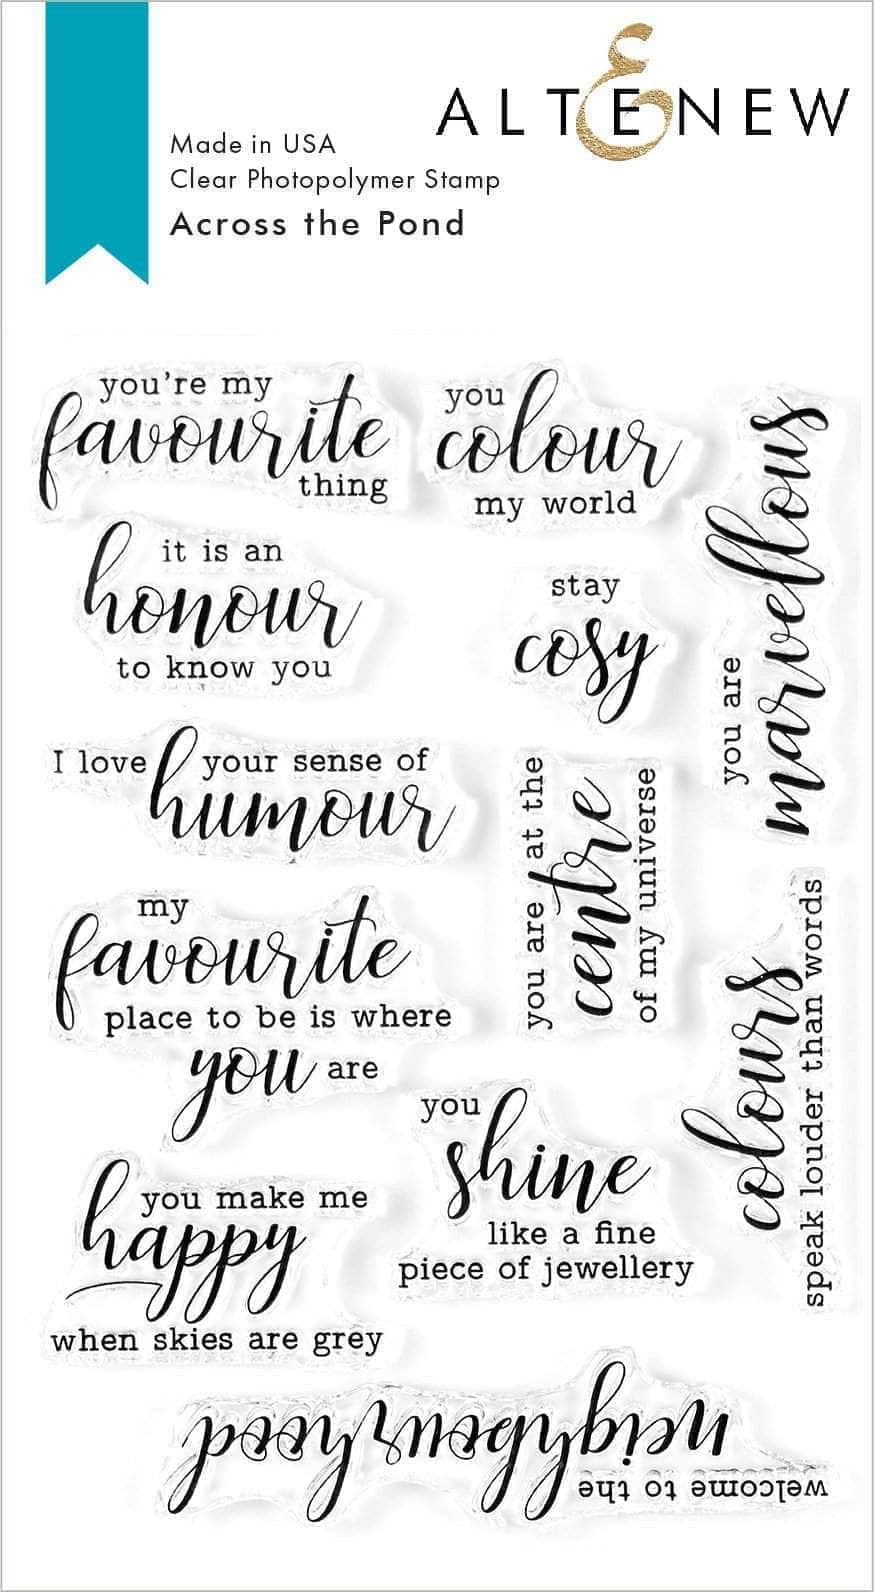 ALTENEW
Made in USA
Clear Photopolymer Stamp
Across the Pond
you're my
favourite
thing
you
colour
my world
you are
marvellous
it is an
honour
to know you
stay
cosy
I love your sense of
humour
you are at the
centre
of my universe
my
favourite
place to be is where
you are
colours
speak louder than words
you
shine
like a fine
piece of jewellery
you make me
happy
when skies are grey
welcome to the
neighbourhood